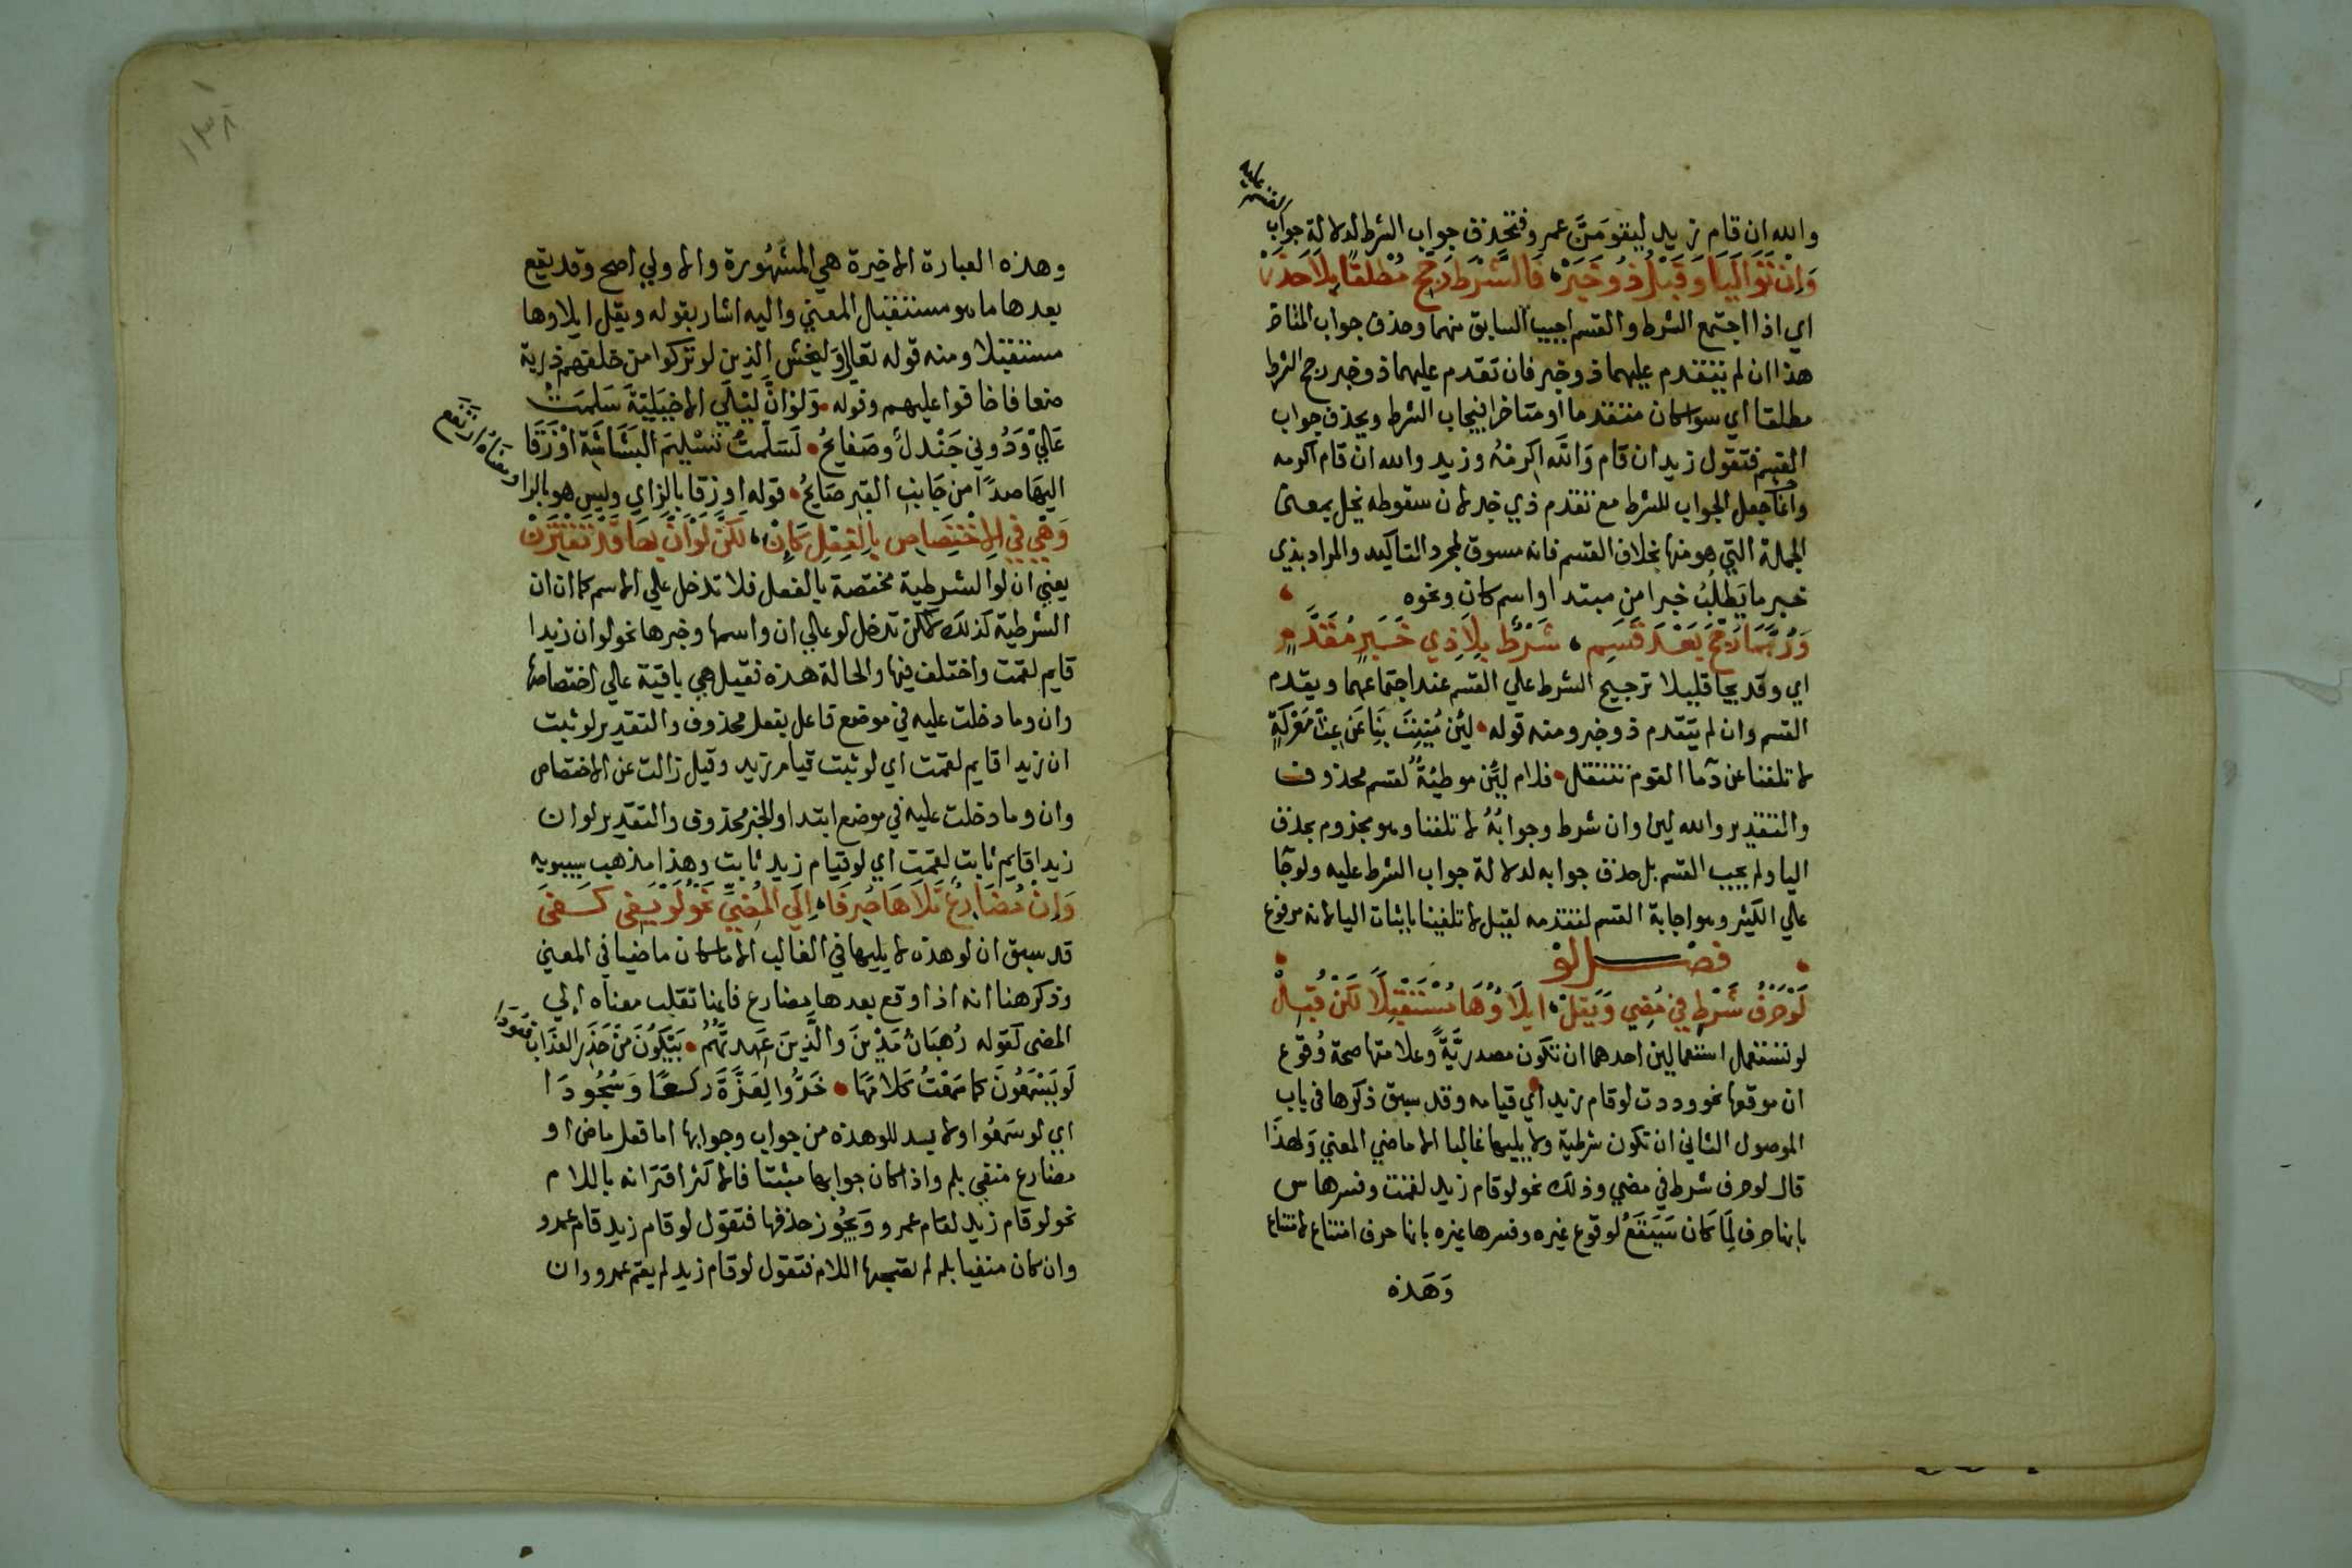 والله ان قام زيد ليقومَنَّ عمرو فتحذف جواب الشرط لدلالة جواب
القسم عليه
وَإِنْ تَوَالَيَا وَقَبْلُ ذُو خَبَرْ فَالشَّرْطَ رَجِّحْ مُطْلَقًا بِلَا حَذَرْ
اي اذا اجتمع الشرط والقسم اجيب السابق منهما وحذف جواب المتاخر
هذا ان لم يتقدم عليهما ذو خبر فان تقدم عليهما ذو خبر رجح الشرط
مطلقا اي سوا كان متقدما او متاخرا فيجاب الشرط ويحذف جواب
القسم فتقول زيد ان قام وَالله اكرمْهُ وزيد والله ان قام اكرمه
وانما جعل الجواب للشرط مع تقدم ذي خبر لان سقوطه يخل بمعنى
الجملة التي هو منها بخلاف القسم فانه مسوق لمجرد التاكيد والمراد بذي
خبر ما يَطلُبُ خبرا من مبتدا او اسم كان ونحوه
وَرُبَّمَا رُجِّحَ بَعْدَ قَسَمِ شَرْطٌ بِلَا ذِي خَبَرٍ مُقَدَّمِ
اي وقد يجا قليلا ترجيح الشرط علي القسم عند اجتماعهما ويقدم
القسم وان لم يتقدم ذو خبر ومنه قوله لَئِن مُنِيتَ بِنَا عَن غِبِّ مَعْرَكَةٍ
لا تلفنا عن دما القوم ننتفل فلام لئن موطئةٌ لقسم محذوف
والتقدير والله لين وان شرط وجوابُهُ لا تلفنا وهو مجزوم بحذف
اليا ولم يجب القسم بل حذف جوابه لدلالة جواب الشرط عليه ولو جا
علي الكثير وهو اجابة القسم لتقدمه لقيل لا تلفينا باثبات اليا لانه مرفوع
فصل لوْ
لَوْ حَرْفُ شَرْطٍ فِي مُضِي وَيَقِلْ ايلَاؤُهَا مُسْتَقْبِلًا لَكِنْ قُبِلْ
لو تستعمل استعمالين احدهما ان تكون مصدريَّةً وعلامتها صحة وُقوع
ان موقعها نحو وددت لو قام زيد اي قيامه وقد سبق ذكرها في باب
الموصول الثاني ان تكون شرطية ولا يليها غالبا الا ماضي المعني وَلهذَا
قال لو حرف شرط في مضي وذلك نحو لو قام زيد لقمت وفسرها س
بانها حرف لِمَا كان سَيَقَعُ لوقوع غيره وفسرها غيره بانها حرف امتناع لامتناع
وَهَذه
وهذه العبارة الاخيرة هي المشهُورة والاولي اصح وقد يقع
بعدها ما هو مستقبل المعني واليه اشار بقوله ويقل ايلاوها
مستقبلا ومنه قوله تعالي وَليخش الذين لو تركوا من خلفهم ذرية
ضعافا خافوا عليهم وقوله وَلوْ انَّ لَيْلَي الاخيَليّةَ سَلمَتْ
عَليَّ وَدُوني جَنْدلٌ وصَفايحُ لَسَلمتُ تَسْليمَ البَشَاشَةِ اوْ زَقَا
اليهَا صدًا من جَانبِ القبرِ صَايحُ قوله او زقا بالزاي وليس هو بالرا
ومعناه ارتفع
وَهْيَ فِي الِاخْتِصَاصِ بِالْفِعْلِ كَإِنْ لَكِنَّ لَوْ أَنَّ بِهَا قَدْ تَقْتَرِنْ
يعني ان لو الشرطية مختصة بالفعل فلا تدخل علي الاسم كما ان ان
الشرطية كذلك لكن تدخل لو علي ان واسمها وخبرها نحو لو ان زيدا
قايم لقمت واختلف فيها والحالة هذه فقيل هي باقية علي اختصاصها
وان وما دخلت عليه في موضع فاعل بفعل محذوف والتقدير لو ثبت
ان زيدا قايم لقمت اي لو ثبت قيام زيد وقيل زالت عن الاختصاص
وان وما دخلت عليه في موضع ابتدا والخبر محذوف والتقدير لو ان
زيدا قايم ثابت لقمت اي لو قيام زيد ثابت وهذا مذهب سيبويه
وَإِنْ مُضَارِعٌ تَلَاهَا صُرِفَا إِلَي الْمُضِيِّ نَحْوُ لَوْ يَفِي كَفَي
قد سبق ان لو هذه لا يليها في الغالب الا ما كان ماضيا في المعني
وذكر هنا انه اذا وقع بعدها مضارع فانها تقلب معناه الي
المضي كقوله رُهبَانُ مَدْيَنَ والَّذِينَ عَهدتُّهُمُ يَبْكُونَ مِنْ حَذَرِ العَذَابِ قعُودَا
لَو يَسْمَعُونَ كما سَمعْتُ كَلامَهَا خَرُّوا لِعَزَّةَ ركعًا وَسُجُودَا
اي لو سَمعُوا ولا بد للو هذه من جواب وجوابها اما فعل ماض او
مضارع منفي بلم واذا كان جوابها مثبتا فالاكثر اقترانه باللام
نحو لو قام زيد لقام عمرو وَيجُوز حذفها فتقول لو قام زيد قام عمرو
وان كان منفيا بلم لم تصحبها اللام فتقول لو قام زيد لم يقم عمرو وان